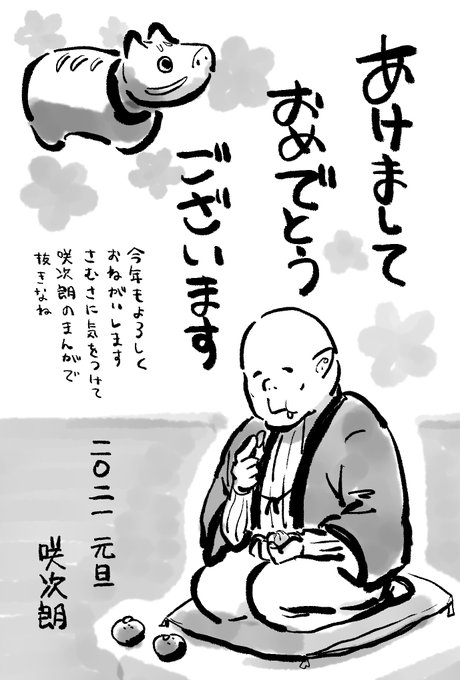 あけまして
おめでとう
ございます
今年もよろしく
おねがいします
さむさに気をつけて
咲次朗のまんがで
抜きなね
二〇二一 元旦
咲次朗